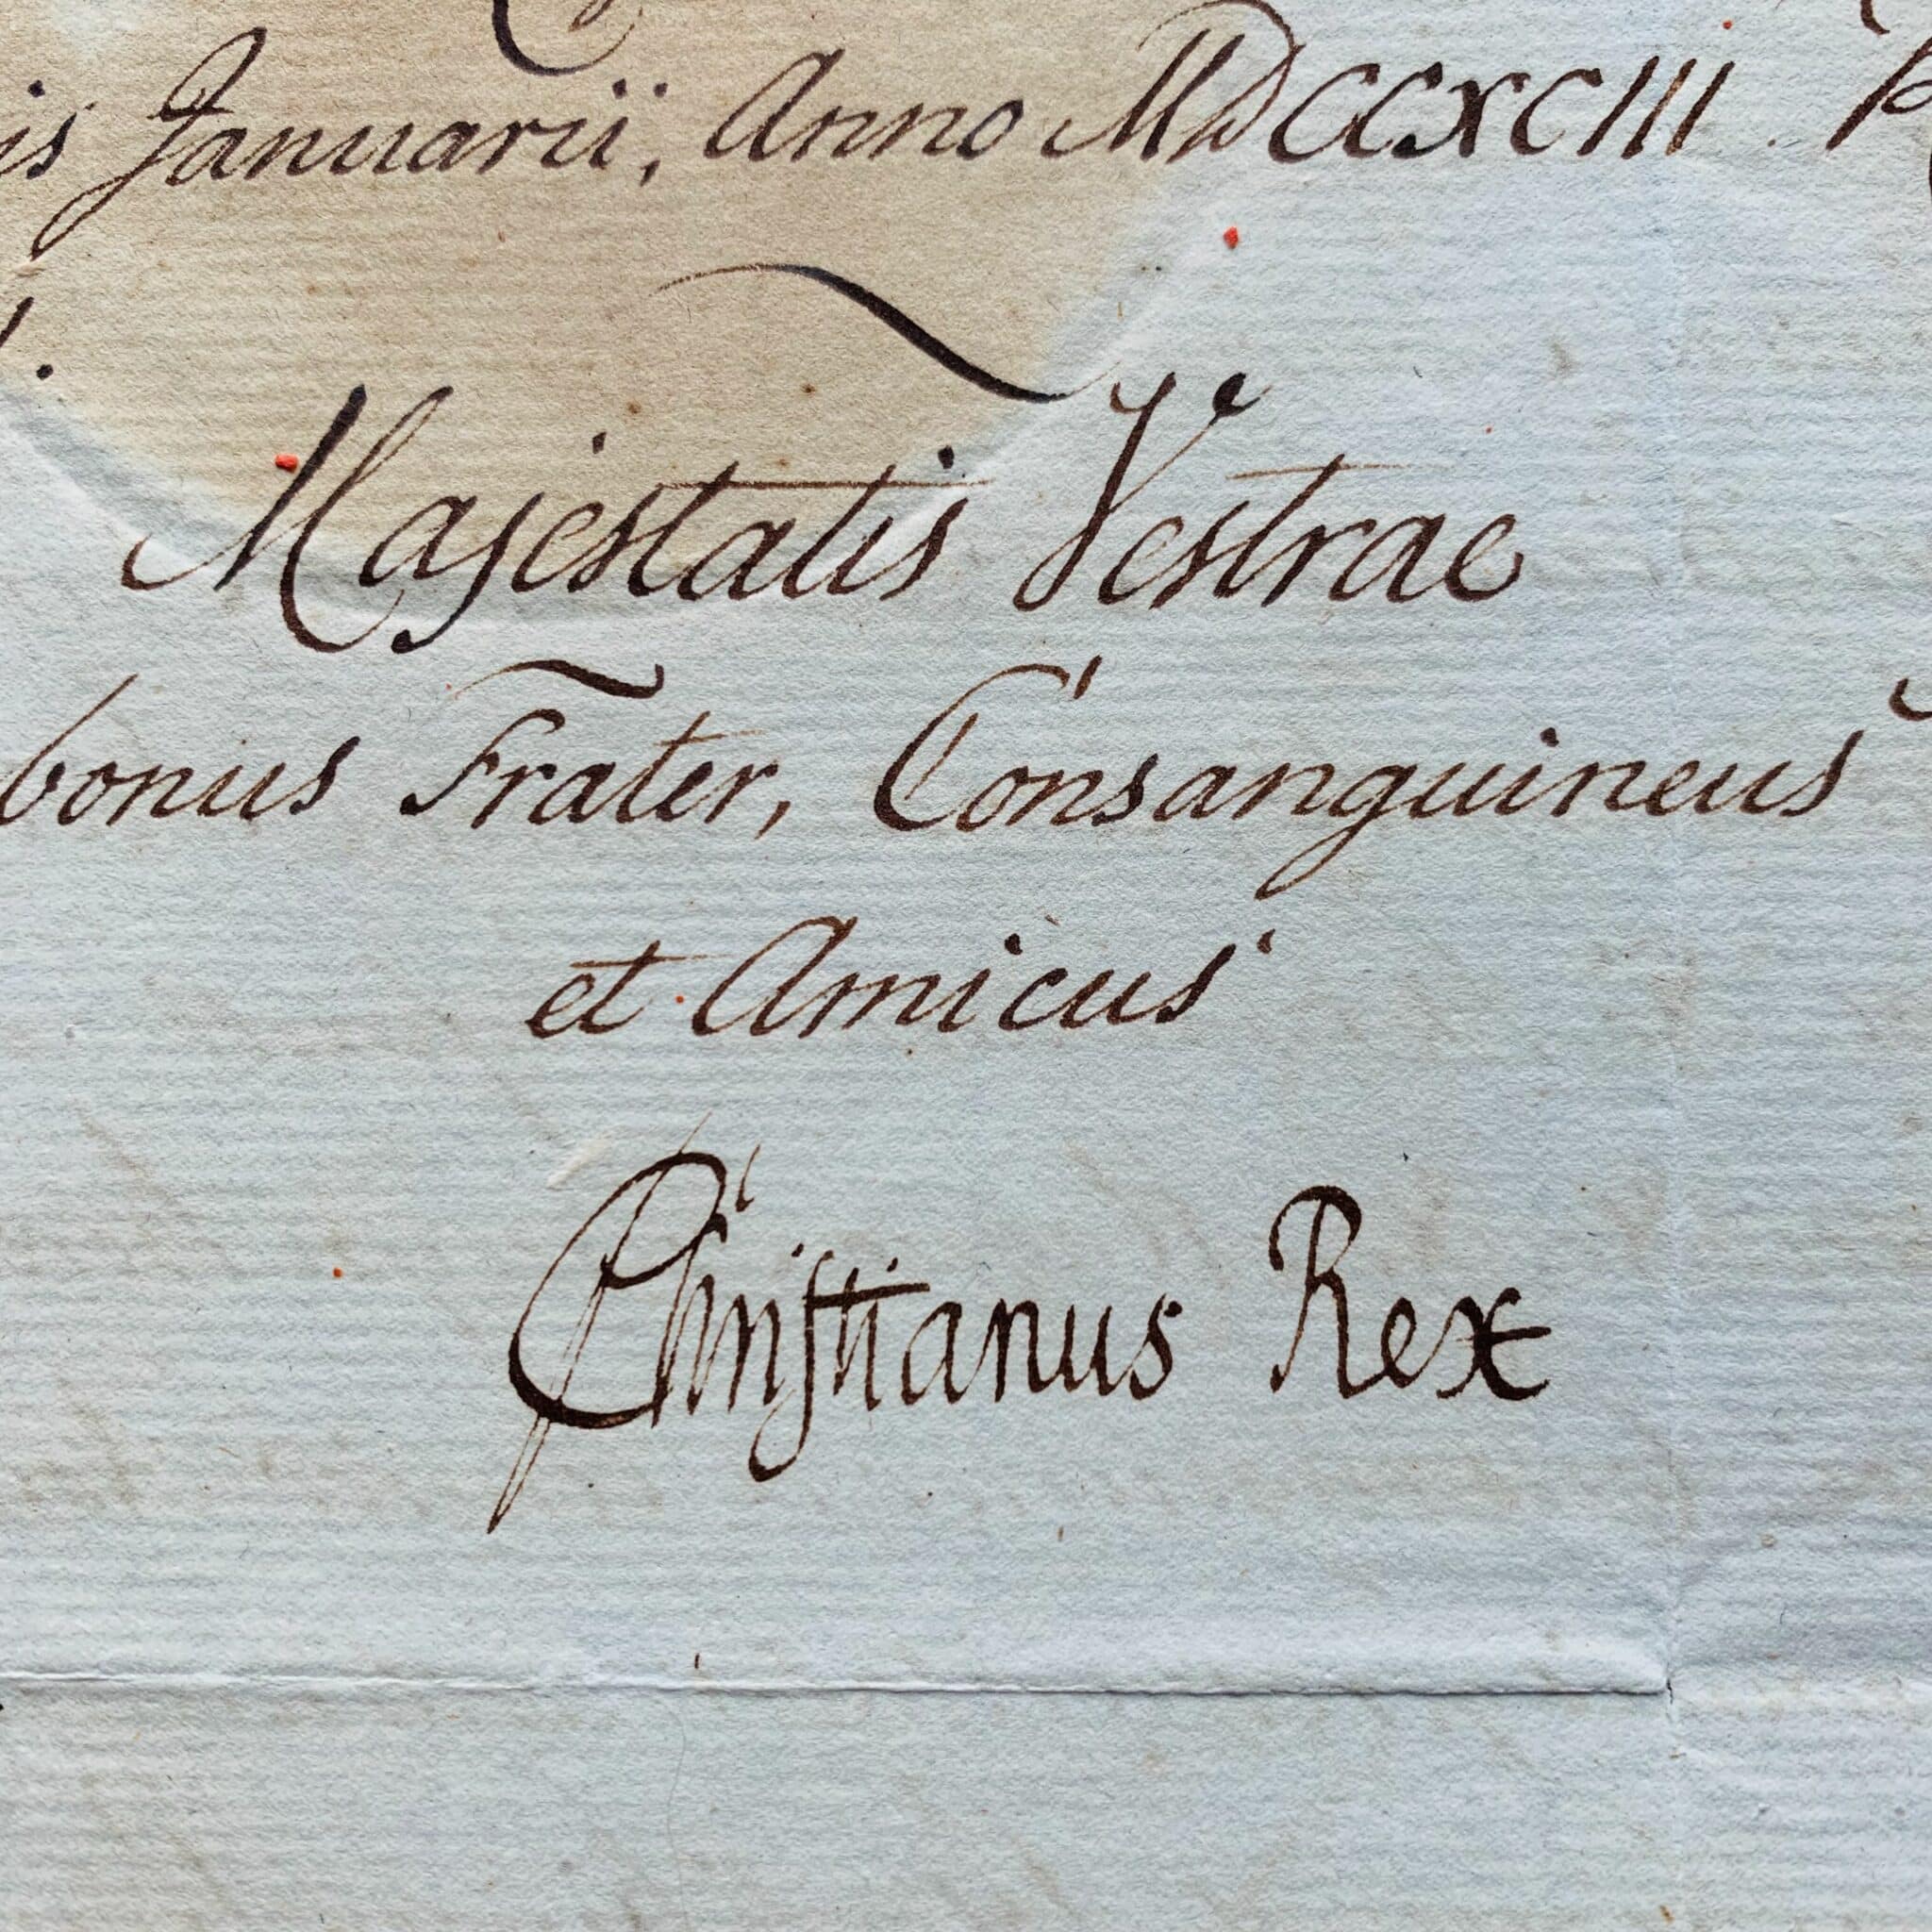 is Januarii, Anno MDCCXCIII.
Majestatis Vestrae
bonus Frater, Consanguineus
et Amicus
Christianus Rex